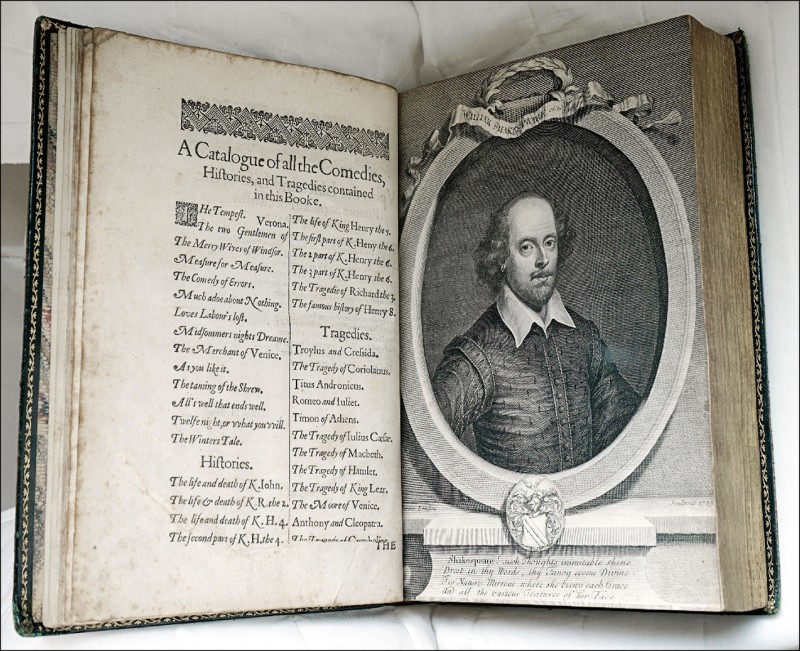 A Catalogue of all the Comedies,
Histories, and Tragedies contained
in this Booke.
THe Tempest.
The two Gentlemen of Verona.
The Merry Wives of Windsor.
Measure for Measure.
The Comedy of Errors.
Much adoe about Nothing.
Loves Labour's lost.
Midsommers nights Dreame.
The Merchant of Venice.
As you like it.
The taming of the Shrew.
All's well that ends well.
Twelfe night, or vvhat you vvill.
The Winters Tale.
Histories.
The life and death of K. Iohn.
The life & death of K. R. the 2.
The life and death of K. H. 4.
The second part of K. H. the 4.
The life of King Henry the 5.
The first part of K. Heny the 6.
The 2 part of K. Henry the 6.
The 3 part of K. Henry the 6.
The Tragedie of Richard the 3.
The famous history of Henry 8.
Tragedies.
Troylus and Cressida.
The Tragedy of Coriolanus.
Titus Andronicus.
Romeo and Iuliet.
Timon of Athens.
The Tragedy of Iulius Cæsar.
The Tragedy of Macbeth.
The Tragedy of Hamlet.
The Tragedy of King Lear.
The Moore of Venice.
Anthony and Cleopatra.
The Tragedy of Cymbeline
THE
WILLIAM SHAKESPEARE
Shakespeare! such thoughts inimitable shine
Drest in thy Words, thy Fancy seems Divine
Tis Natures Mirrour where she views each Grace
And all the various Features of her Face.